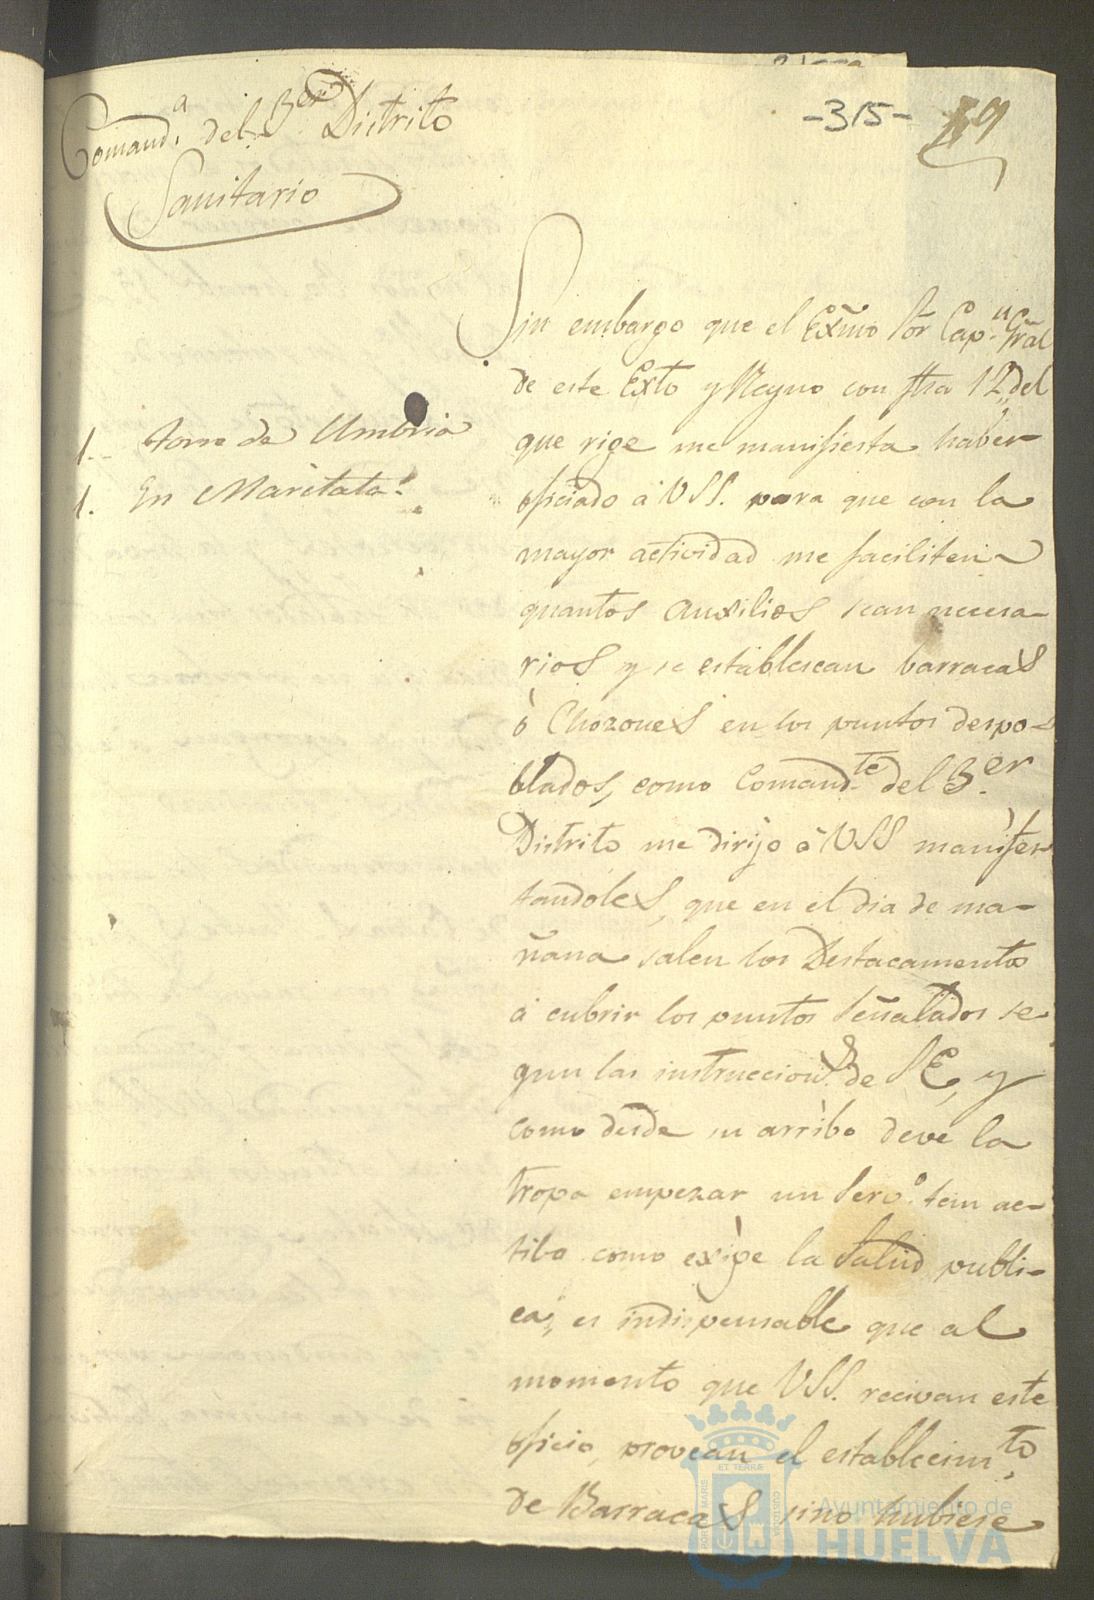 -315- 59
Comand.ª del 3er Distrito
Sanitario
Sin embargo que el Exmo Sor Cap.n Gral
de este Exto y Reyno con fha 12,, del
que rige me manifiesta haber
oficiado á VSS. para que con la
mayor actividad me faciliten
quantos auxilios sean necesa-
rios y se establescan barracas
ó Chozones en los puntos despo-
blados, como Comand.te del 3.er
Distrito me dirijo á VSS manifes
tandoles, que en el dia de ma-
ñana salen los Destacamentos
á cubrir los puntos señalados se
gun las instruccion.s de SE, y
como desde su arribo deve la
tropa empezar un serv.o tan ac-
tibo como exige la salud publi-
ca, es indispensable que al
momento que VSS. recivan este
oficio, provean el establecim.to
de Barracas sino hubiese
1.. torre de Umbria
1. En Maritata.
PORTUS MARIS
ET TERRÆ
CUSTODIA
Ayuntamiento de
HUELVA